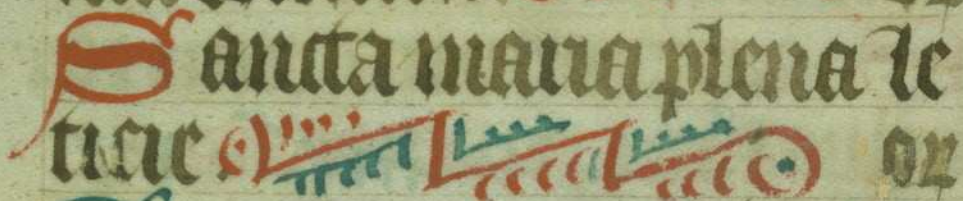 Sancta maria plena le
ticie or